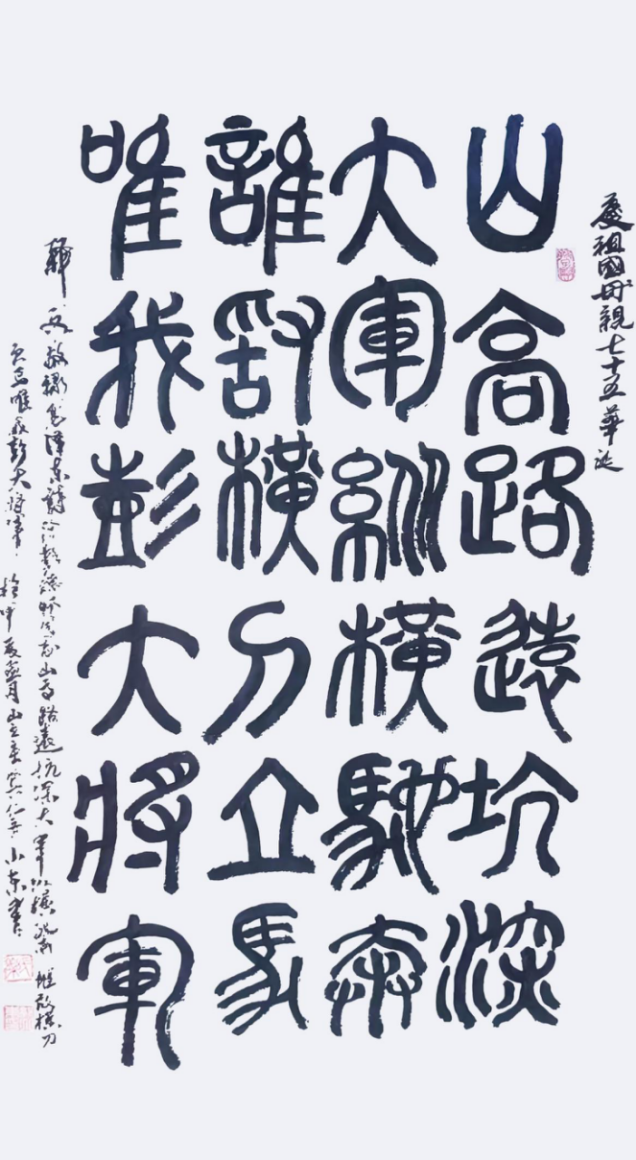 慶祖國母親七十五華誕
山高路遠坑深
大軍縱橫馳奔
誰敢橫刀立馬
唯我彭大將軍
敬錄毛澤東詩給彭德懷同志山高路遠坑深大軍縱橫馳奔誰敢橫刀
立馬唯我彭大將軍於甲辰山東書